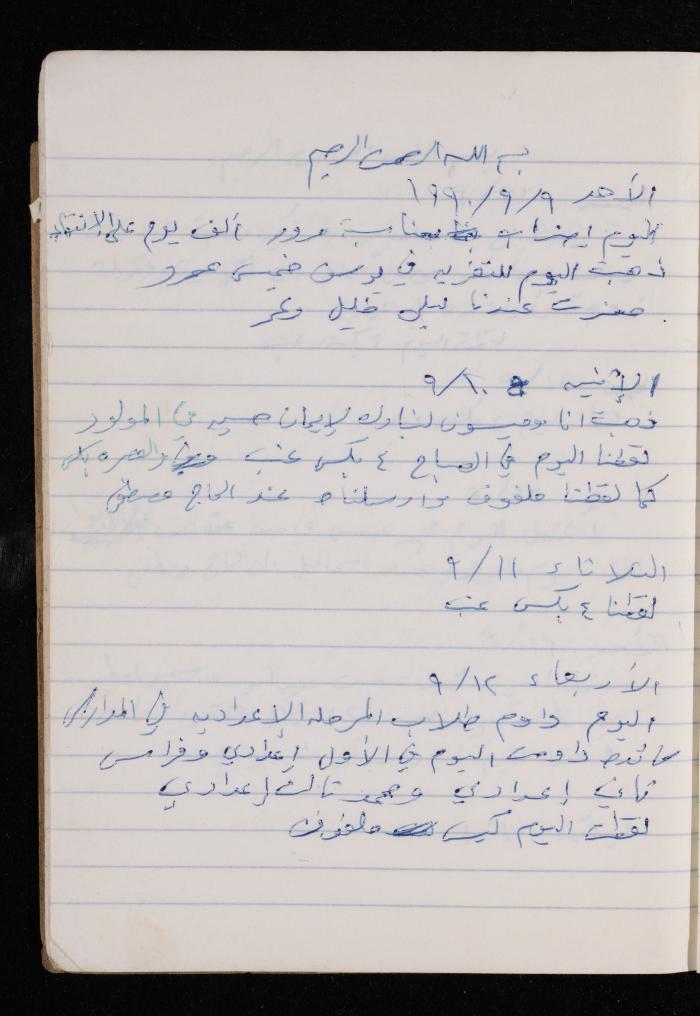 بسم الله الرحمن الرحيم
الأحد ٩/٩/١٩٩٠
اليوم إضراب بمناسبة مرور ألف يوم على الانتفاضة
ذهبت اليوم للتعزية في يونس خميس عمرو
حضرت عندنا ليلى خليل وعمر
الإثنين ٩/١٠
ذهبت انا وميسون لنبارك لإيمان حسين في المولود
لقطنا اليوم في الصباح ٤ بكس عنب والعصر بكس
كما لقطنا ملفوف وأرسلناه عند الحاج مصطفى
الثلاثاء ٩/١١
لقطنا ٤ بكس عنب
الأربعاء ٩/١٢
اليوم داوم طلاب المرحلة الإعدادية في المدارس
داومت اليوم في الأول إعدادي وفراس
ثاني إعدادي ومحمد ثالث إعدادي
لقطت اليوم كيس ملفوف